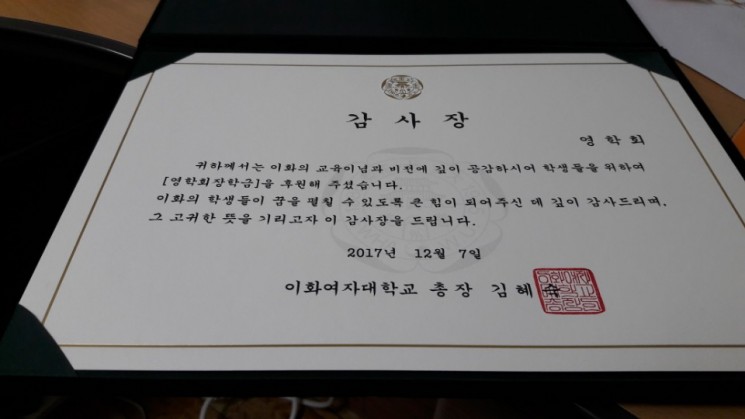 감사장
영학회
귀하께서는 이화의 교육이념과 비전에 깊이 공감하시어 학생들을 위하여
[영학회장학금]을 후원해 주셨습니다.
이화의 학생들이 꿈을 펼칠 수 있도록 큰 힘이 되어주신 데 깊이 감사드리며,
그 고귀한 뜻을 기리고자 이 감사장을 드립니다.
2017년 12월 7일
이화여자대학교 총장 김혜숙